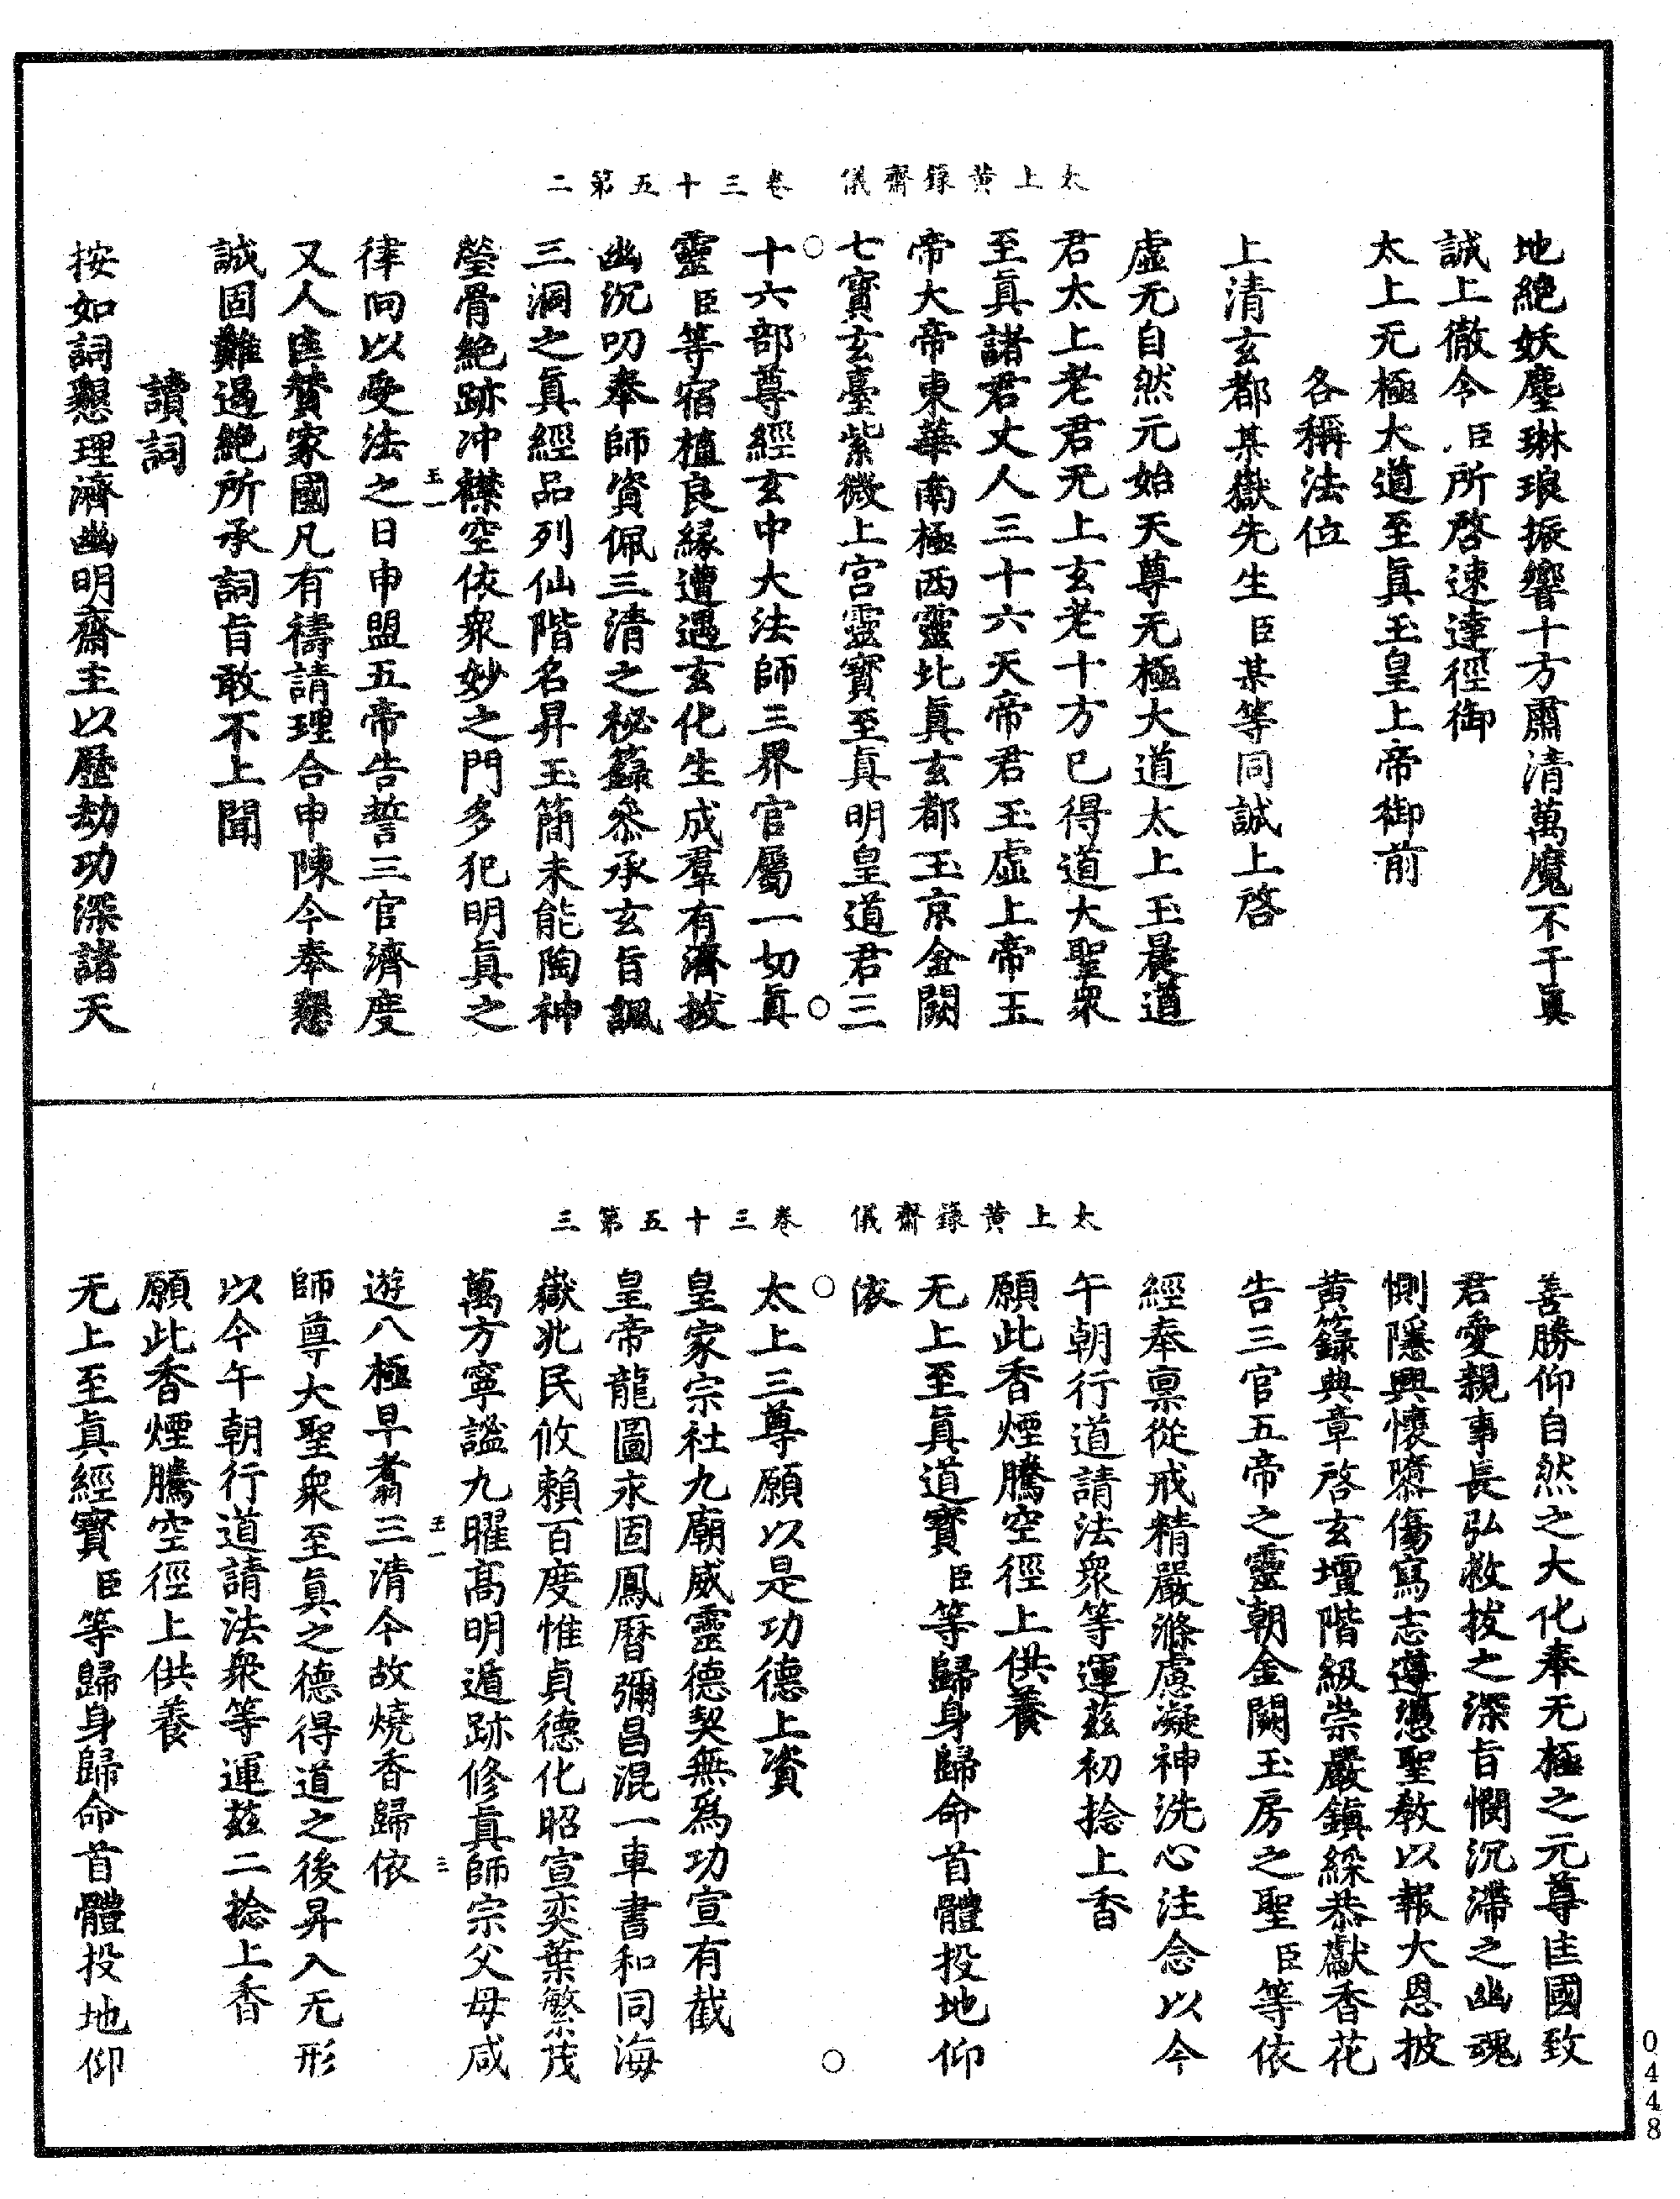 太上黃錄齋儀　卷三十五第二
地絕妖塵琳琅振響十方肅清萬魔不干真
誠上徹今臣所啓速達徑御
太上无極大道至真玉皇上帝御前
各稱法位
上清玄都某嶽先生臣某等同誠上啓
虛无自然元始天尊无極大道太上玉晨道
君太上老君无上玄老十方已得道大聖衆
至真諸君丈人三十六天帝君玉虛上帝玉
帝大帝東華南極西靈北真玄都玉京金闕
七寶玄臺紫微上宮靈寶至真明皇道君三
十六部尊經玄中大法師三界官屬一切真
靈臣等宿植良緣遭遇玄化生成羣有濟拔
幽沉叨奉師資佩三清之祕籙叅承玄旨諷
三洞之真經品列仙階名昇玉簡未能陶神
瑩骨絕跡冲襟空依衆妙之門多犯明真之
律向以受法之日申盟五帝告誓三官濟度
又人匡贊家國凡有禱請理合申陳今奉懇
誠固難遏絕所承詞旨敢不上聞
讀詞
按如詞懇理濟幽明齋主以歷劫功深諸天
太上黃錄齋儀　卷三十五第三
善勝仰自然之大化奉无極之元尊匡國致
君愛親事長弘救拔之深旨憫沉滯之幽魂
惻隱興懷隳傷寫志遵憑聖教以報大恩披
黃籙典章啓玄壇階級崇嚴鎮綵恭獻香花
告三官五帝之靈朝金闕玉房之聖臣等依
經奉禀從戒精嚴滌慮凝神洗心注念以今
午朝行道請法衆等運茲初捻上香
願此香煙騰空徑上供養
无上至真道寶臣等歸身歸命首體投地仰
依
太上三尊願以是功德上資
皇家宗社九廟威靈德契無爲功宣有截
皇帝龍圖永固鳳曆彌昌混一車書和同海
嶽兆民攸賴百度惟貞德化昭宣奕葉繁茂
萬方寧謐九曜高明遁跡修真師宗父母咸
遊八極早翥三清今故燒香歸依
師尊大聖衆至真之德得道之後昇入无形
以今午朝行道請法衆等運茲二捻上香
願此香煙騰空徑上供養
无上至真經寶臣等歸身歸命首體投地仰
0448